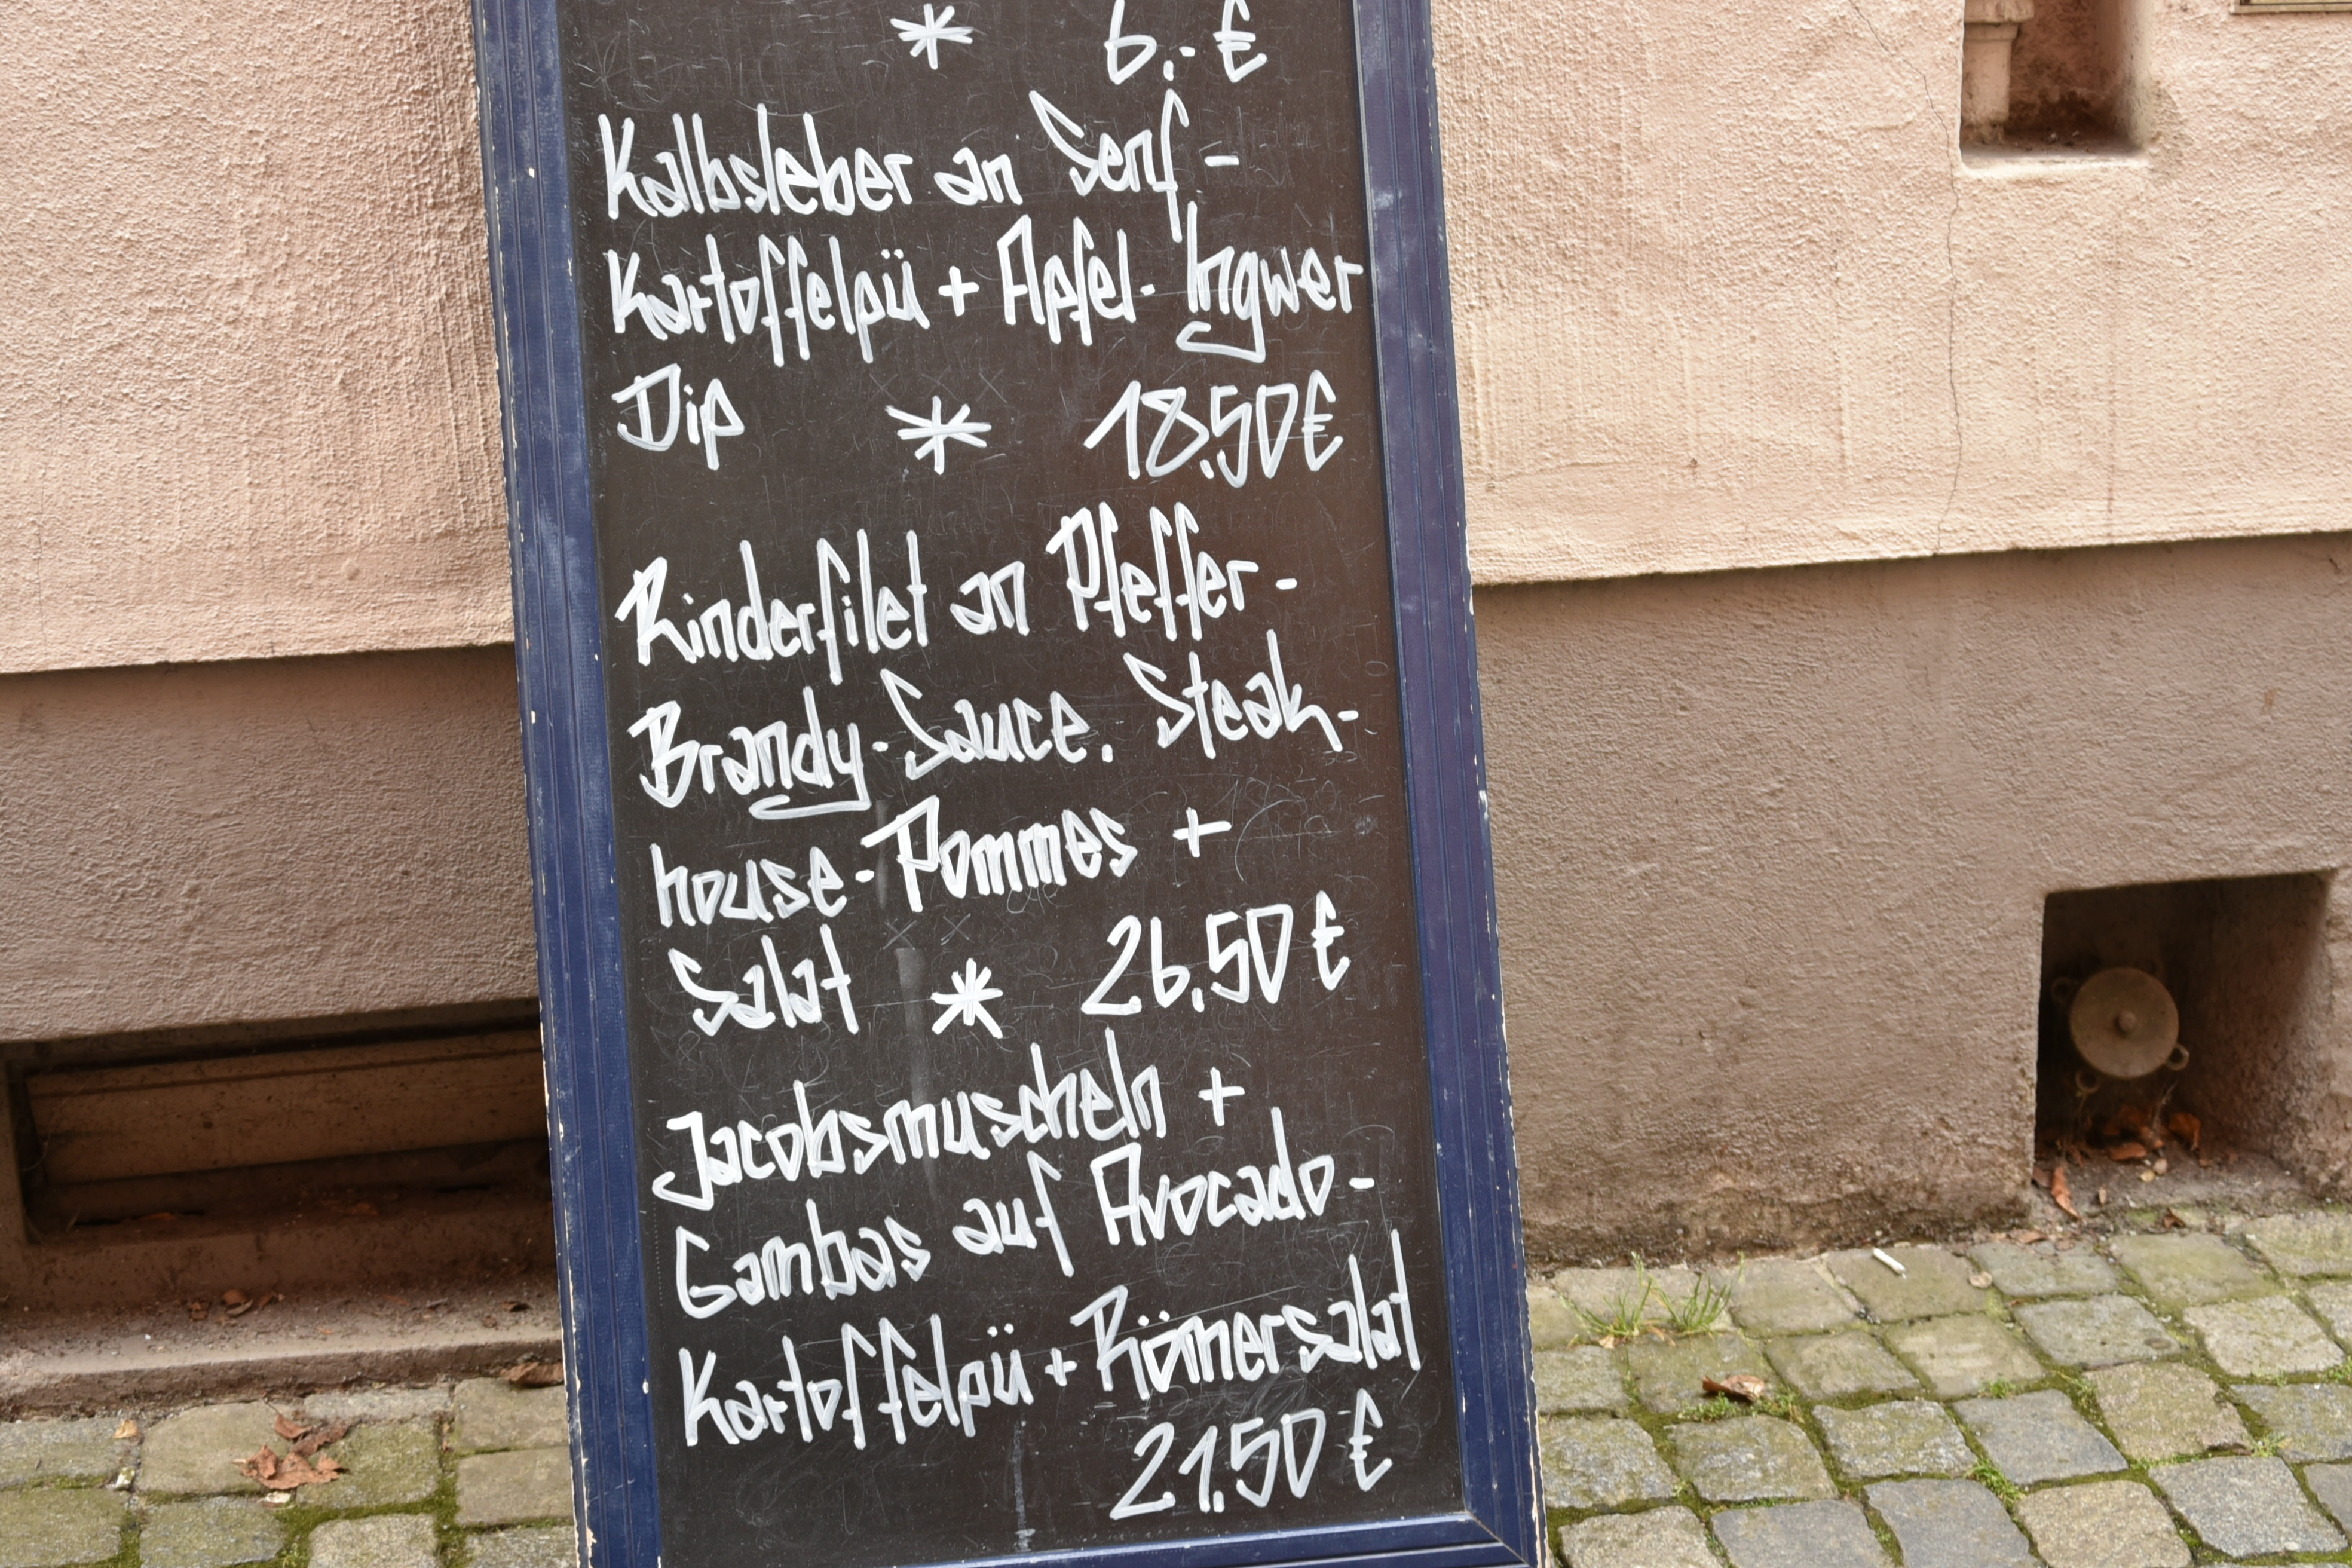 * 6.- €
Kalbsleber an Senf-
Kartoffelpü + Apfel-Ingwer
Dip * 18.50€
Rinderfilet an Pfeffer-
Brandy-Sauce. Steak-
house-Pommes +
Salat * 26.50 €
Jacobsmuscheln +
Gambas auf Avocado-
Kartoffelpü + Römersalat
21.50 €